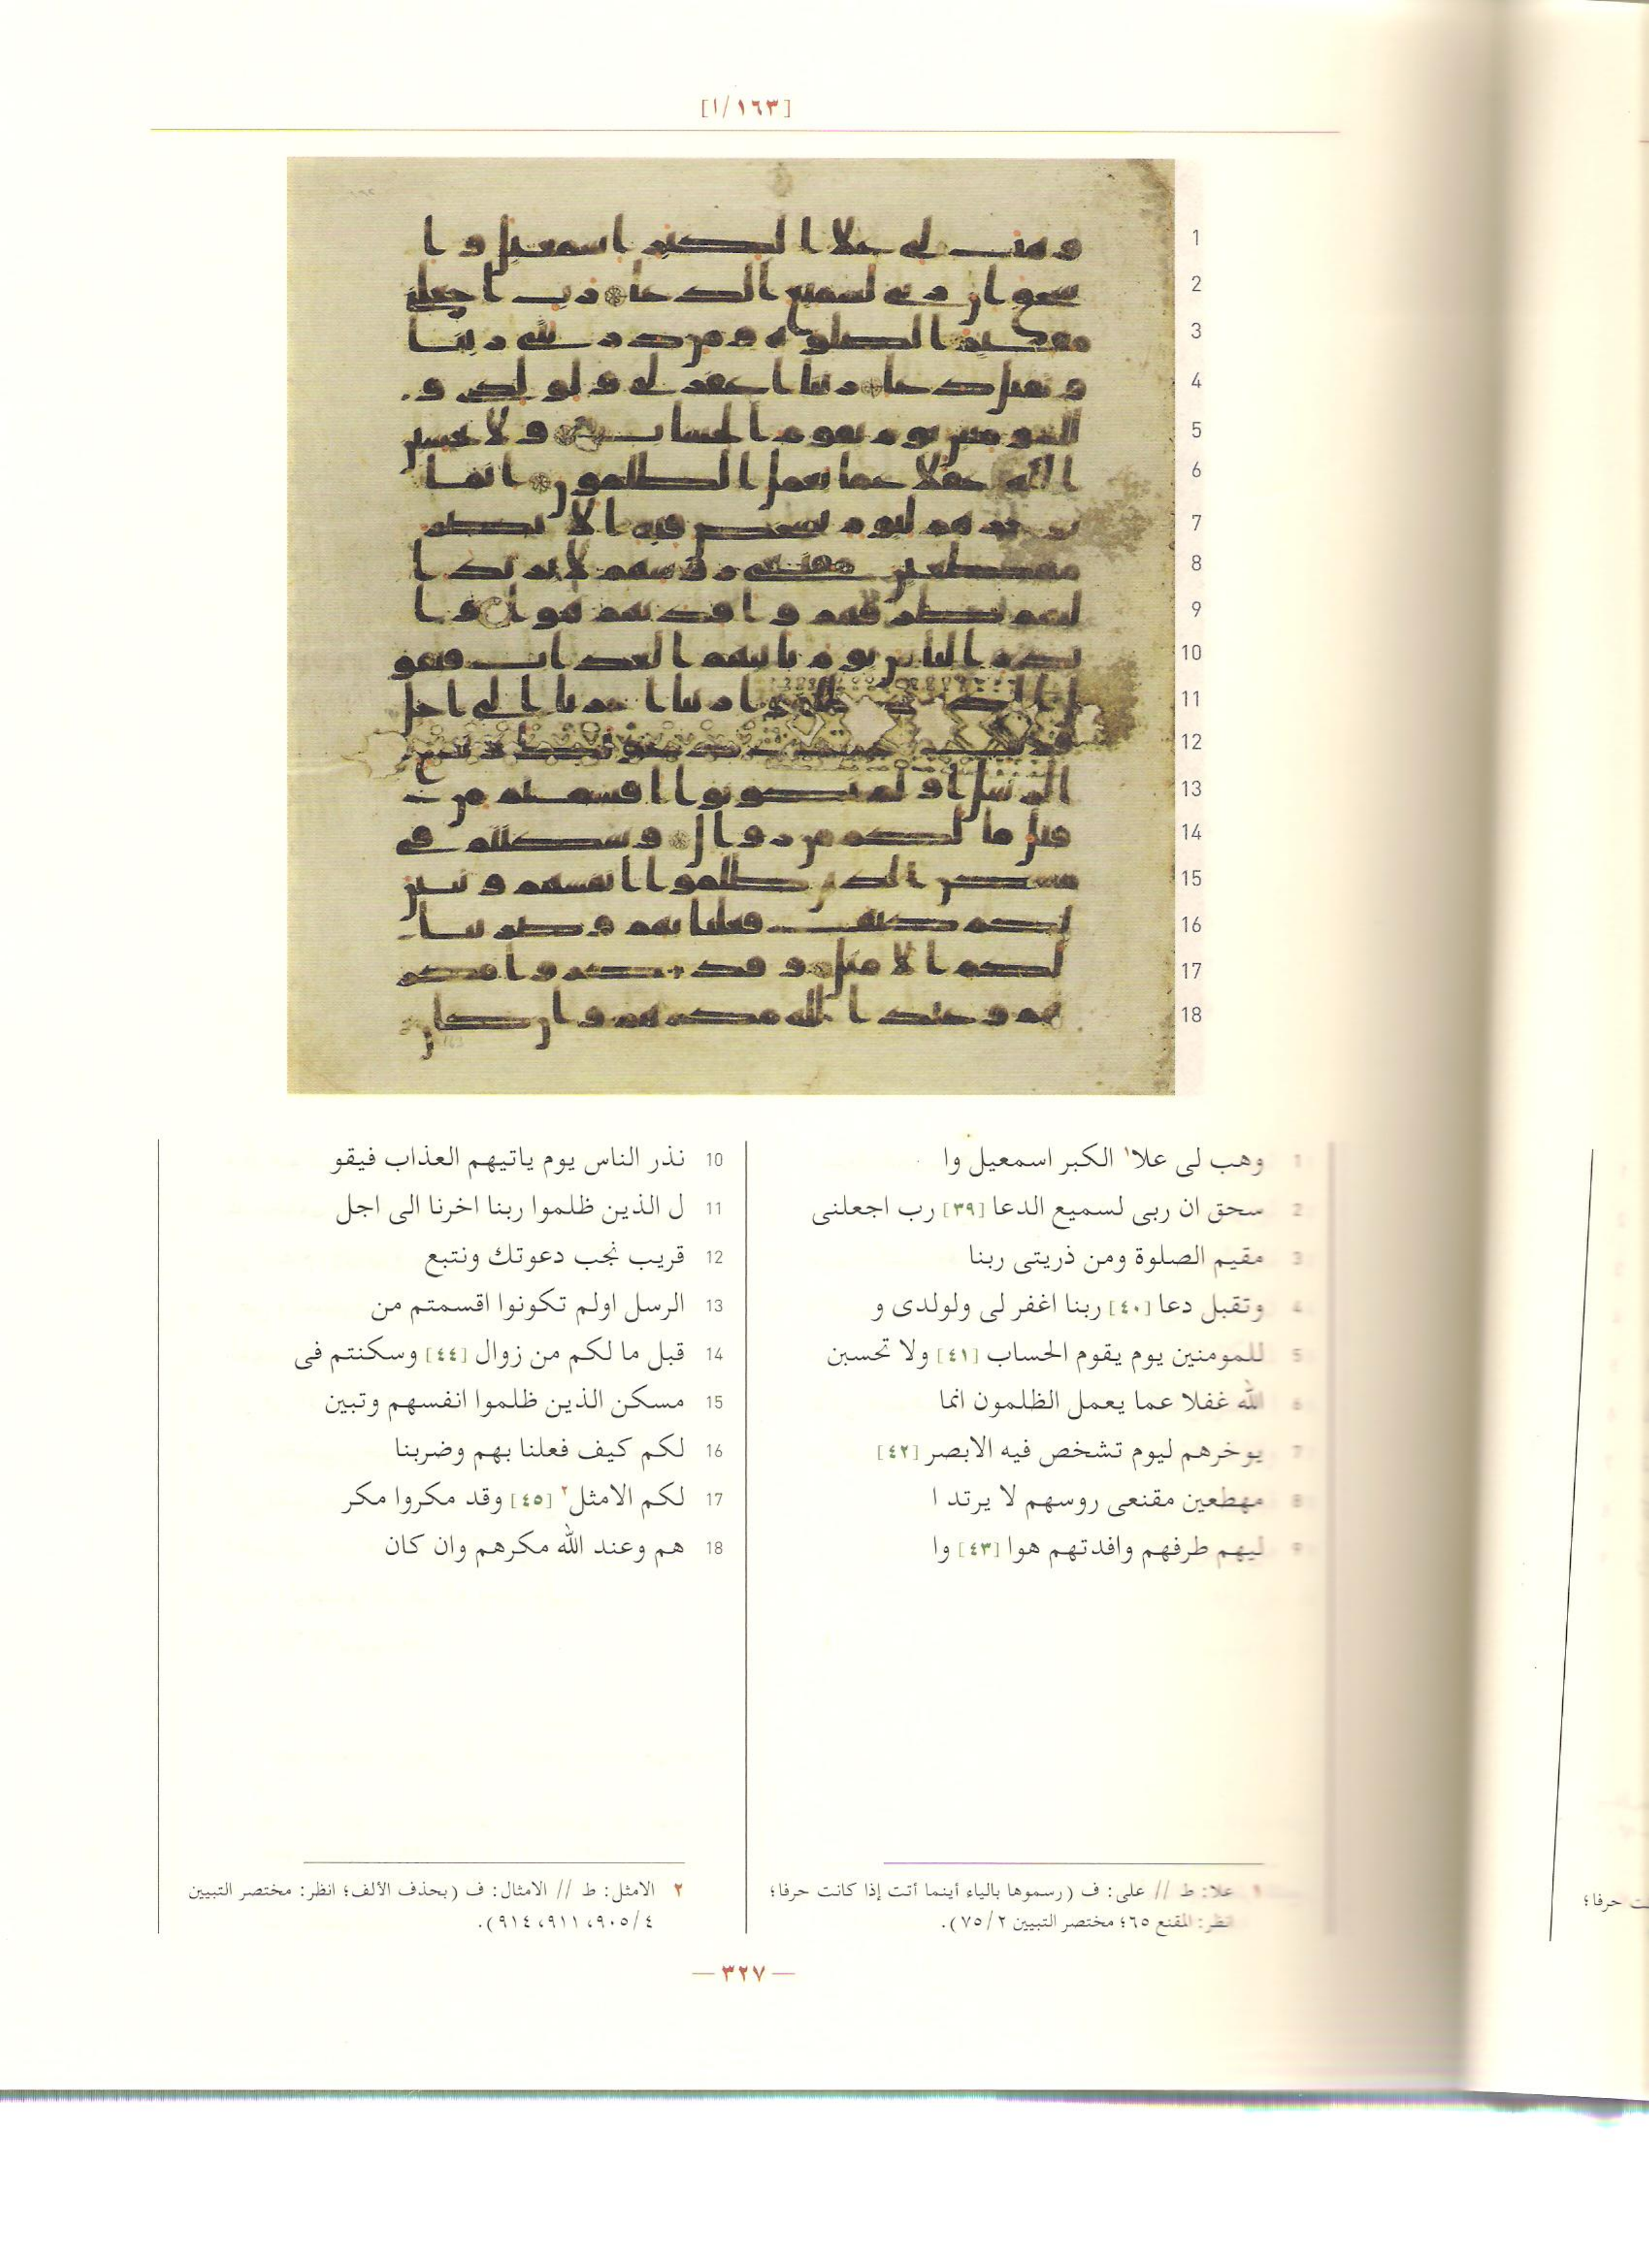 [١٦٣/ا]
1
2
3
4
5
6
7
8
9
10
11
12
13
14
15
16
17
18
1 وهب لى علا١ الكبر اسمعيل وا
2 سحق ان ربى لسميع الدعا [٣٩] رب اجعلنى
3 مقيم الصلوة ومن ذريتى ربنا
4 وتقبل دعا [٤٠] ربنا اغفر لى ولولدى و
5 للمومنين يوم يقوم الحساب [٤١] ولا تحسبن
6 الله غفلا عما يعمل الظلمون انما
7 يوخرهم ليوم تشخص فيه الابصر [٤٢]
8 مهطعين مقنعى روسهم لا يرتد ا
9 ليهم طرفهم وافدتهم هوا [٤٣] وا
10 نذر الناس يوم ياتيهم العذاب فيقو
11 ل الذين ظلموا ربنا اخرنا الى اجل
12 قريب نجب دعوتك ونتبع
13 الرسل اولم تكونوا اقسمتم من
14 قبل ما لكم من زوال [٤٤] وسكنتم فى
15 مسكن الذين ظلموا انفسهم وتبين
16 لكم كيف فعلنا بهم وضربنا
17 لكم الامثل٢ [٤٥] وقد مكروا مكر
18 هم وعند الله مكرهم وان كان
١ علا: ط // على: ف (رسموها بالياء أينما أتت إذا كانت حرفا؛
انظر: المقنع ٦٥؛ مختصر التبيين ٧٥/٢).
٢ الامثل: ط // الامثال: ف (بحذف الألف؛ انظر: مختصر التبيين
٩٠٥/٤، ٩١١، ٩١٤).
— ٣٢٧ —
ت حرفا؛